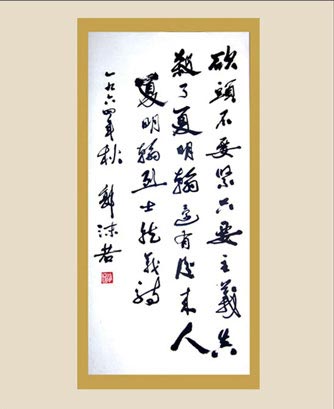 砍頭不要緊只要主義真
殺了夏明翰還有後来人
夏明翰烈士就義詩
一九六四年秋 郭沫若